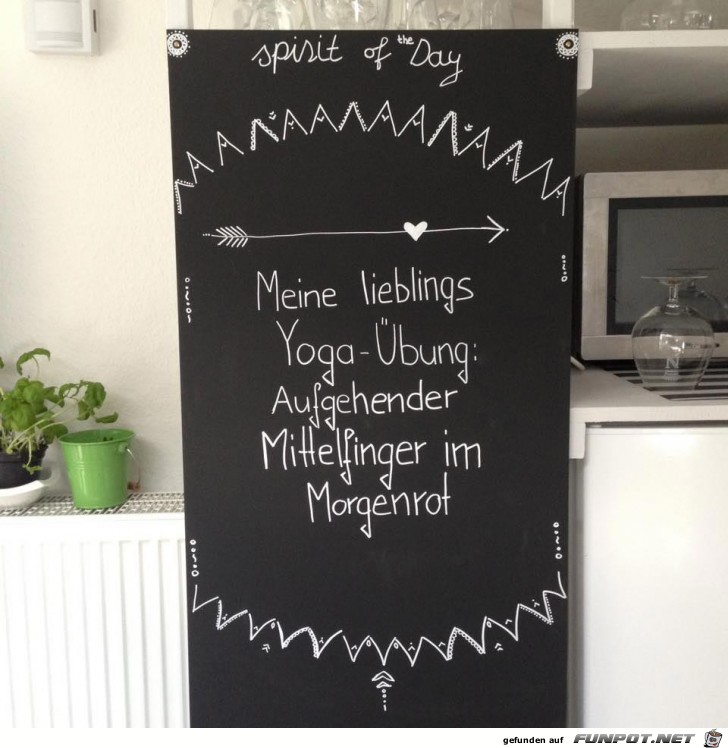 spirit of the Day
Meine lieblings
Yoga-Übung:
Aufgehender
Mittelfinger im
Morgenrot
gefunden auf FUNPOT.NET